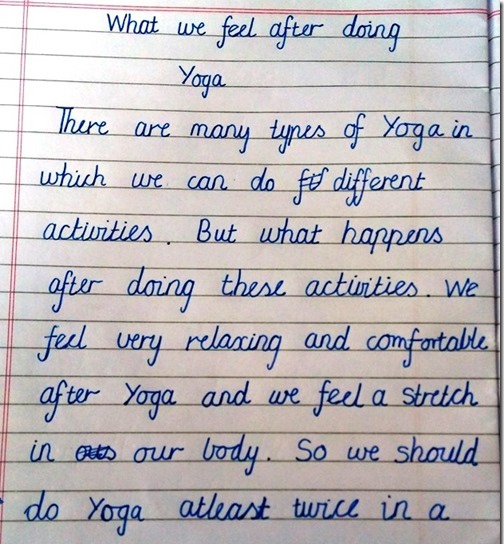 What we feel after doing
Yoga
There are many types of Yoga in
which we can do different
activities. But what happens
after doing these activities. We
feel very relaxing and comfortable
after Yoga and we feel a stretch
in our body. So we should
do Yoga atleast twice in a